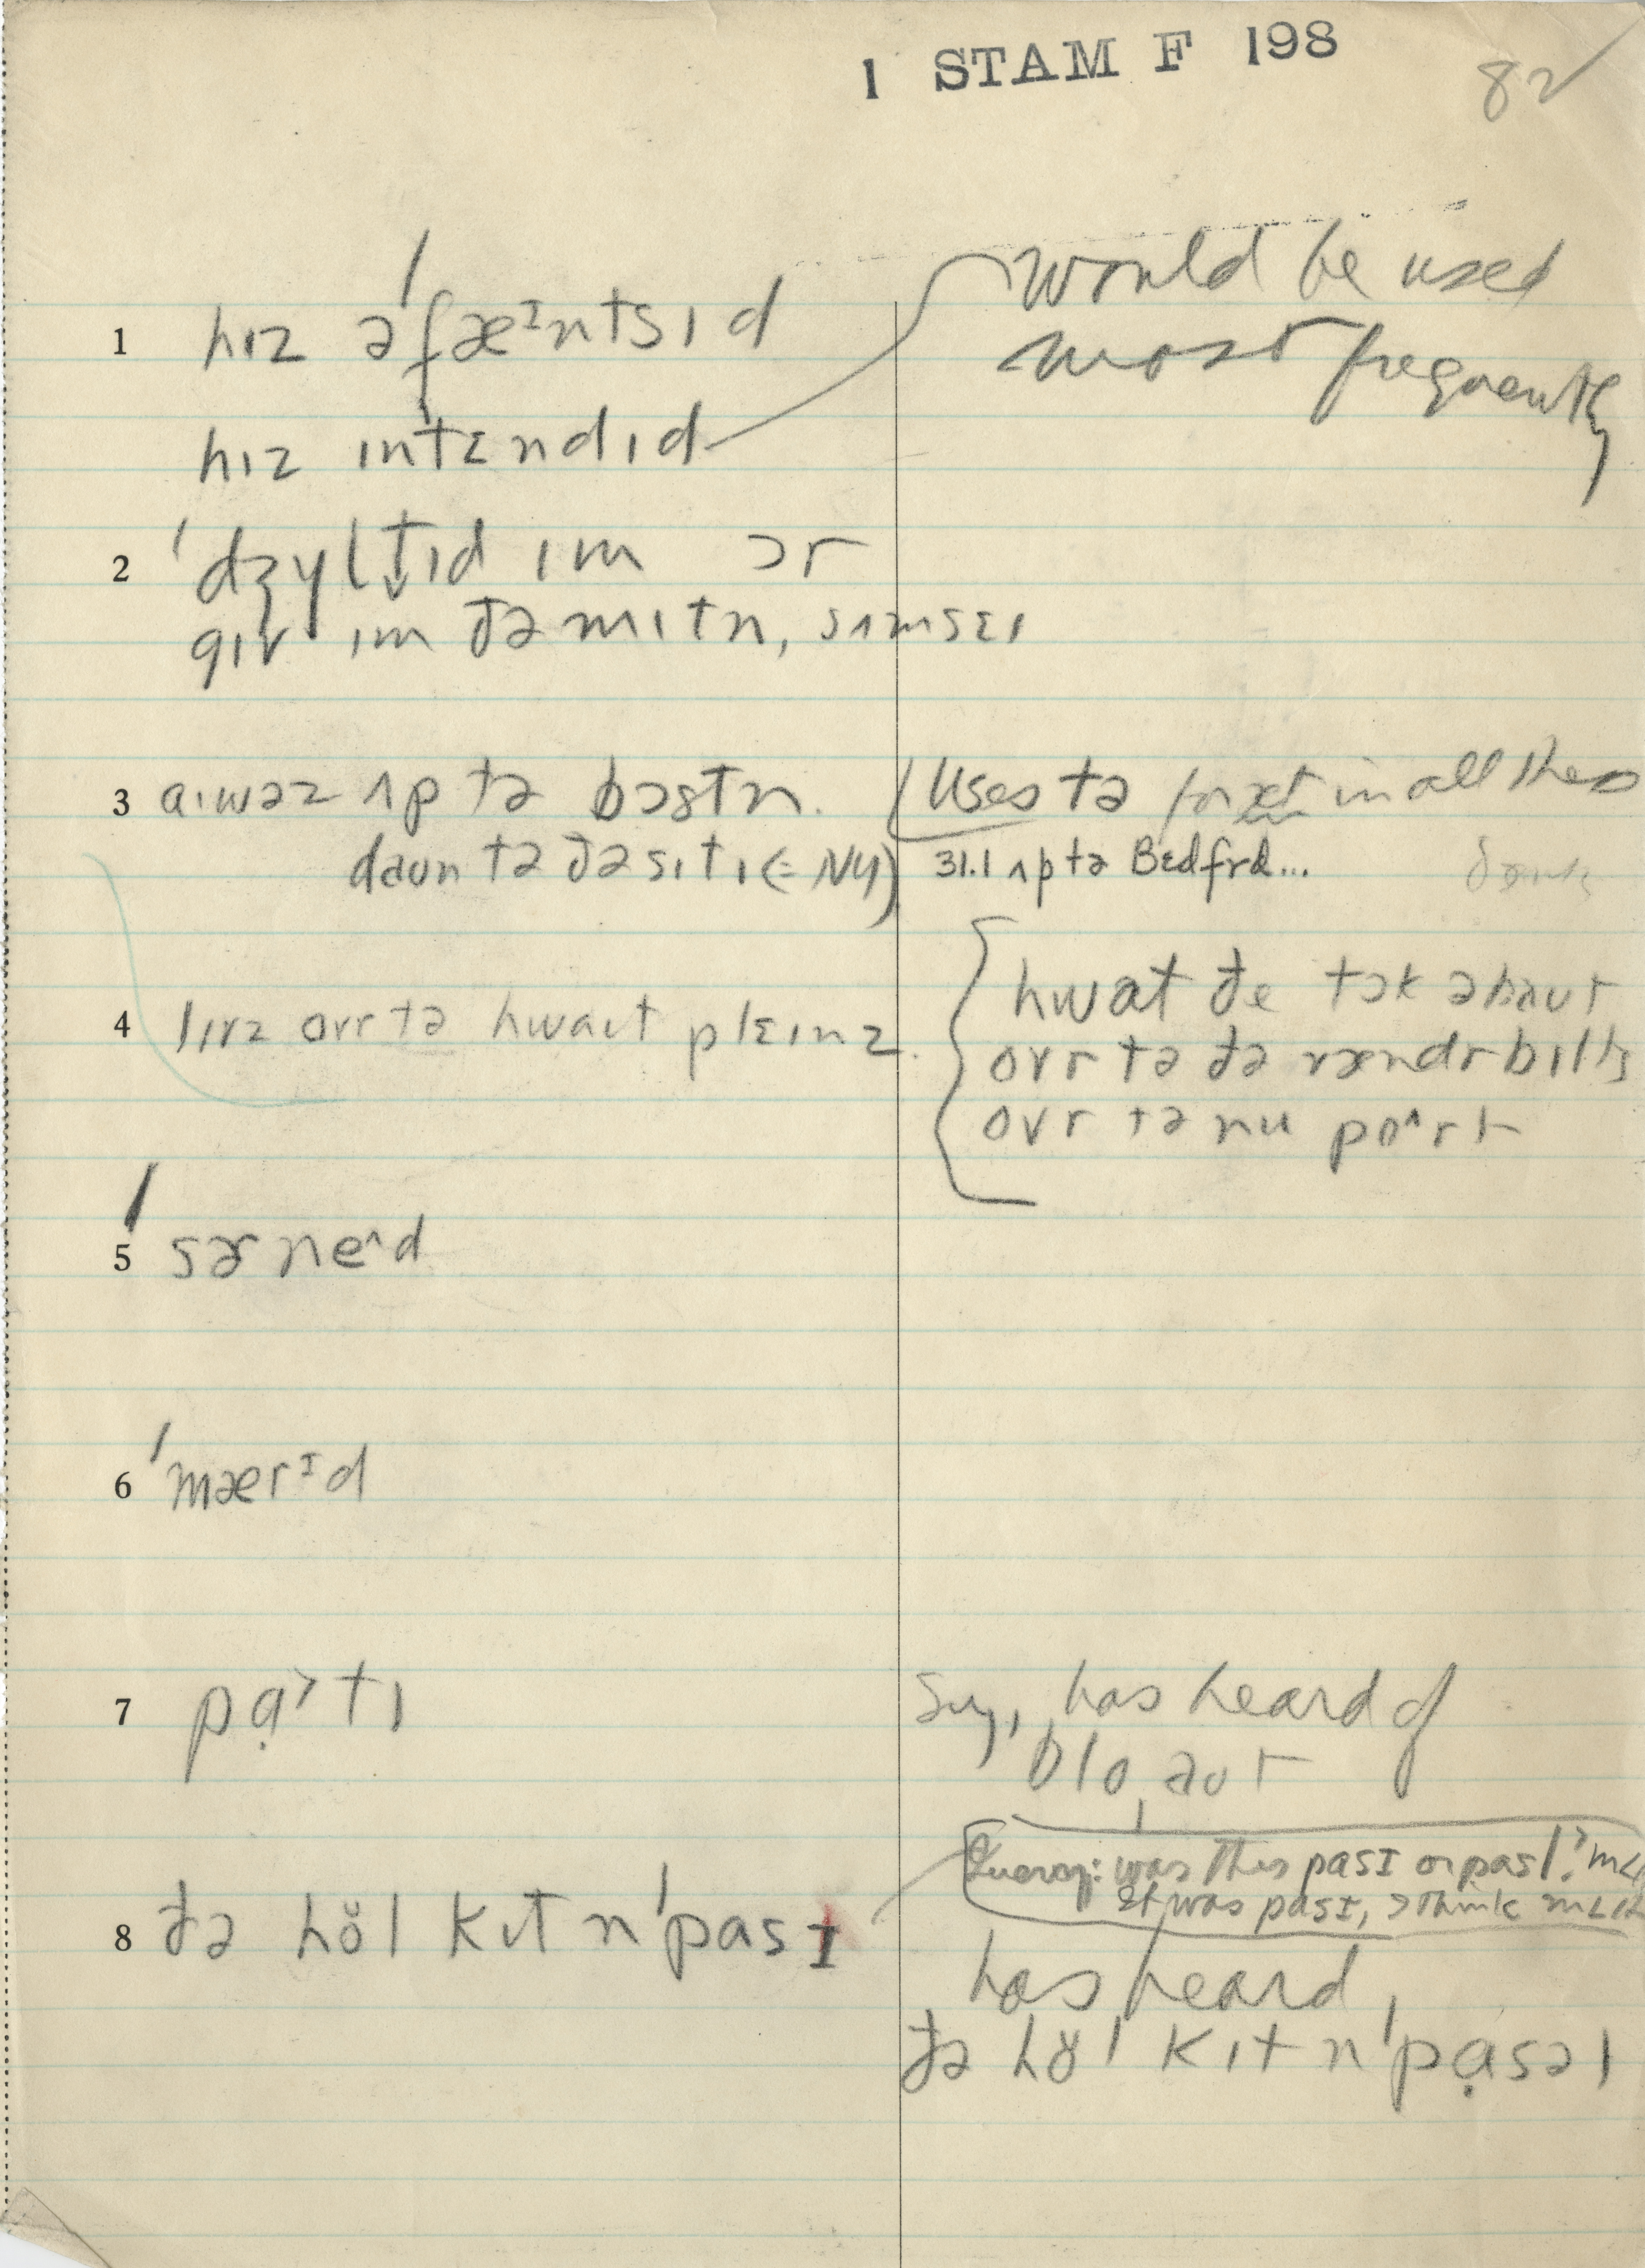 1 STAM F 198
82
1 hɪz əˈfæᶦntsɪd
hɪz ɪntɛndɪd
would be used
most frequently
2 ˈdʒɣltɪd ɪm ɔr
gɪv ɪm ðə mɪtn, sʌmsɛɪ
3 aɪwəz ʌp tə bɔstn.
daʊn tə ðə sɪtɪ (= NY)
Uses tə in all these
31.1 ʌp tə Bɛdfrd...
4 lɪvz ovr tə hwaɪt plɛɪnz.
hwat ðe tɔk əbaut
ovr tə ðə vændrbɪlts
ovr tə nu po^rt
5 ˈsɚne^d
6 ˈmærᶦd
7 pạ˃tɪ
Sug, has heard of
bloˌaut
8 ðə hŏl kɪt nˈpasɪ
Query: was this pasɪ or pasl? MLH
It was pasɪ, I think MLH
has heard
ðə hŏl kɪt nˈpạsəl